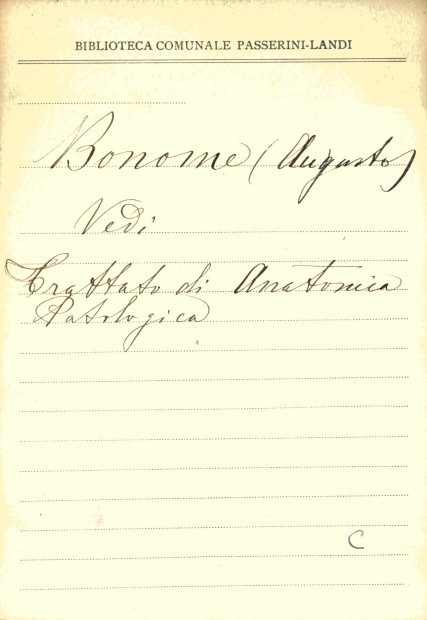 BIBLIOTECA COMUNALE PASSERINI-LANDI
Bonome (Augusto)
Vedi
Trattato di Anatomica
Patologica
C